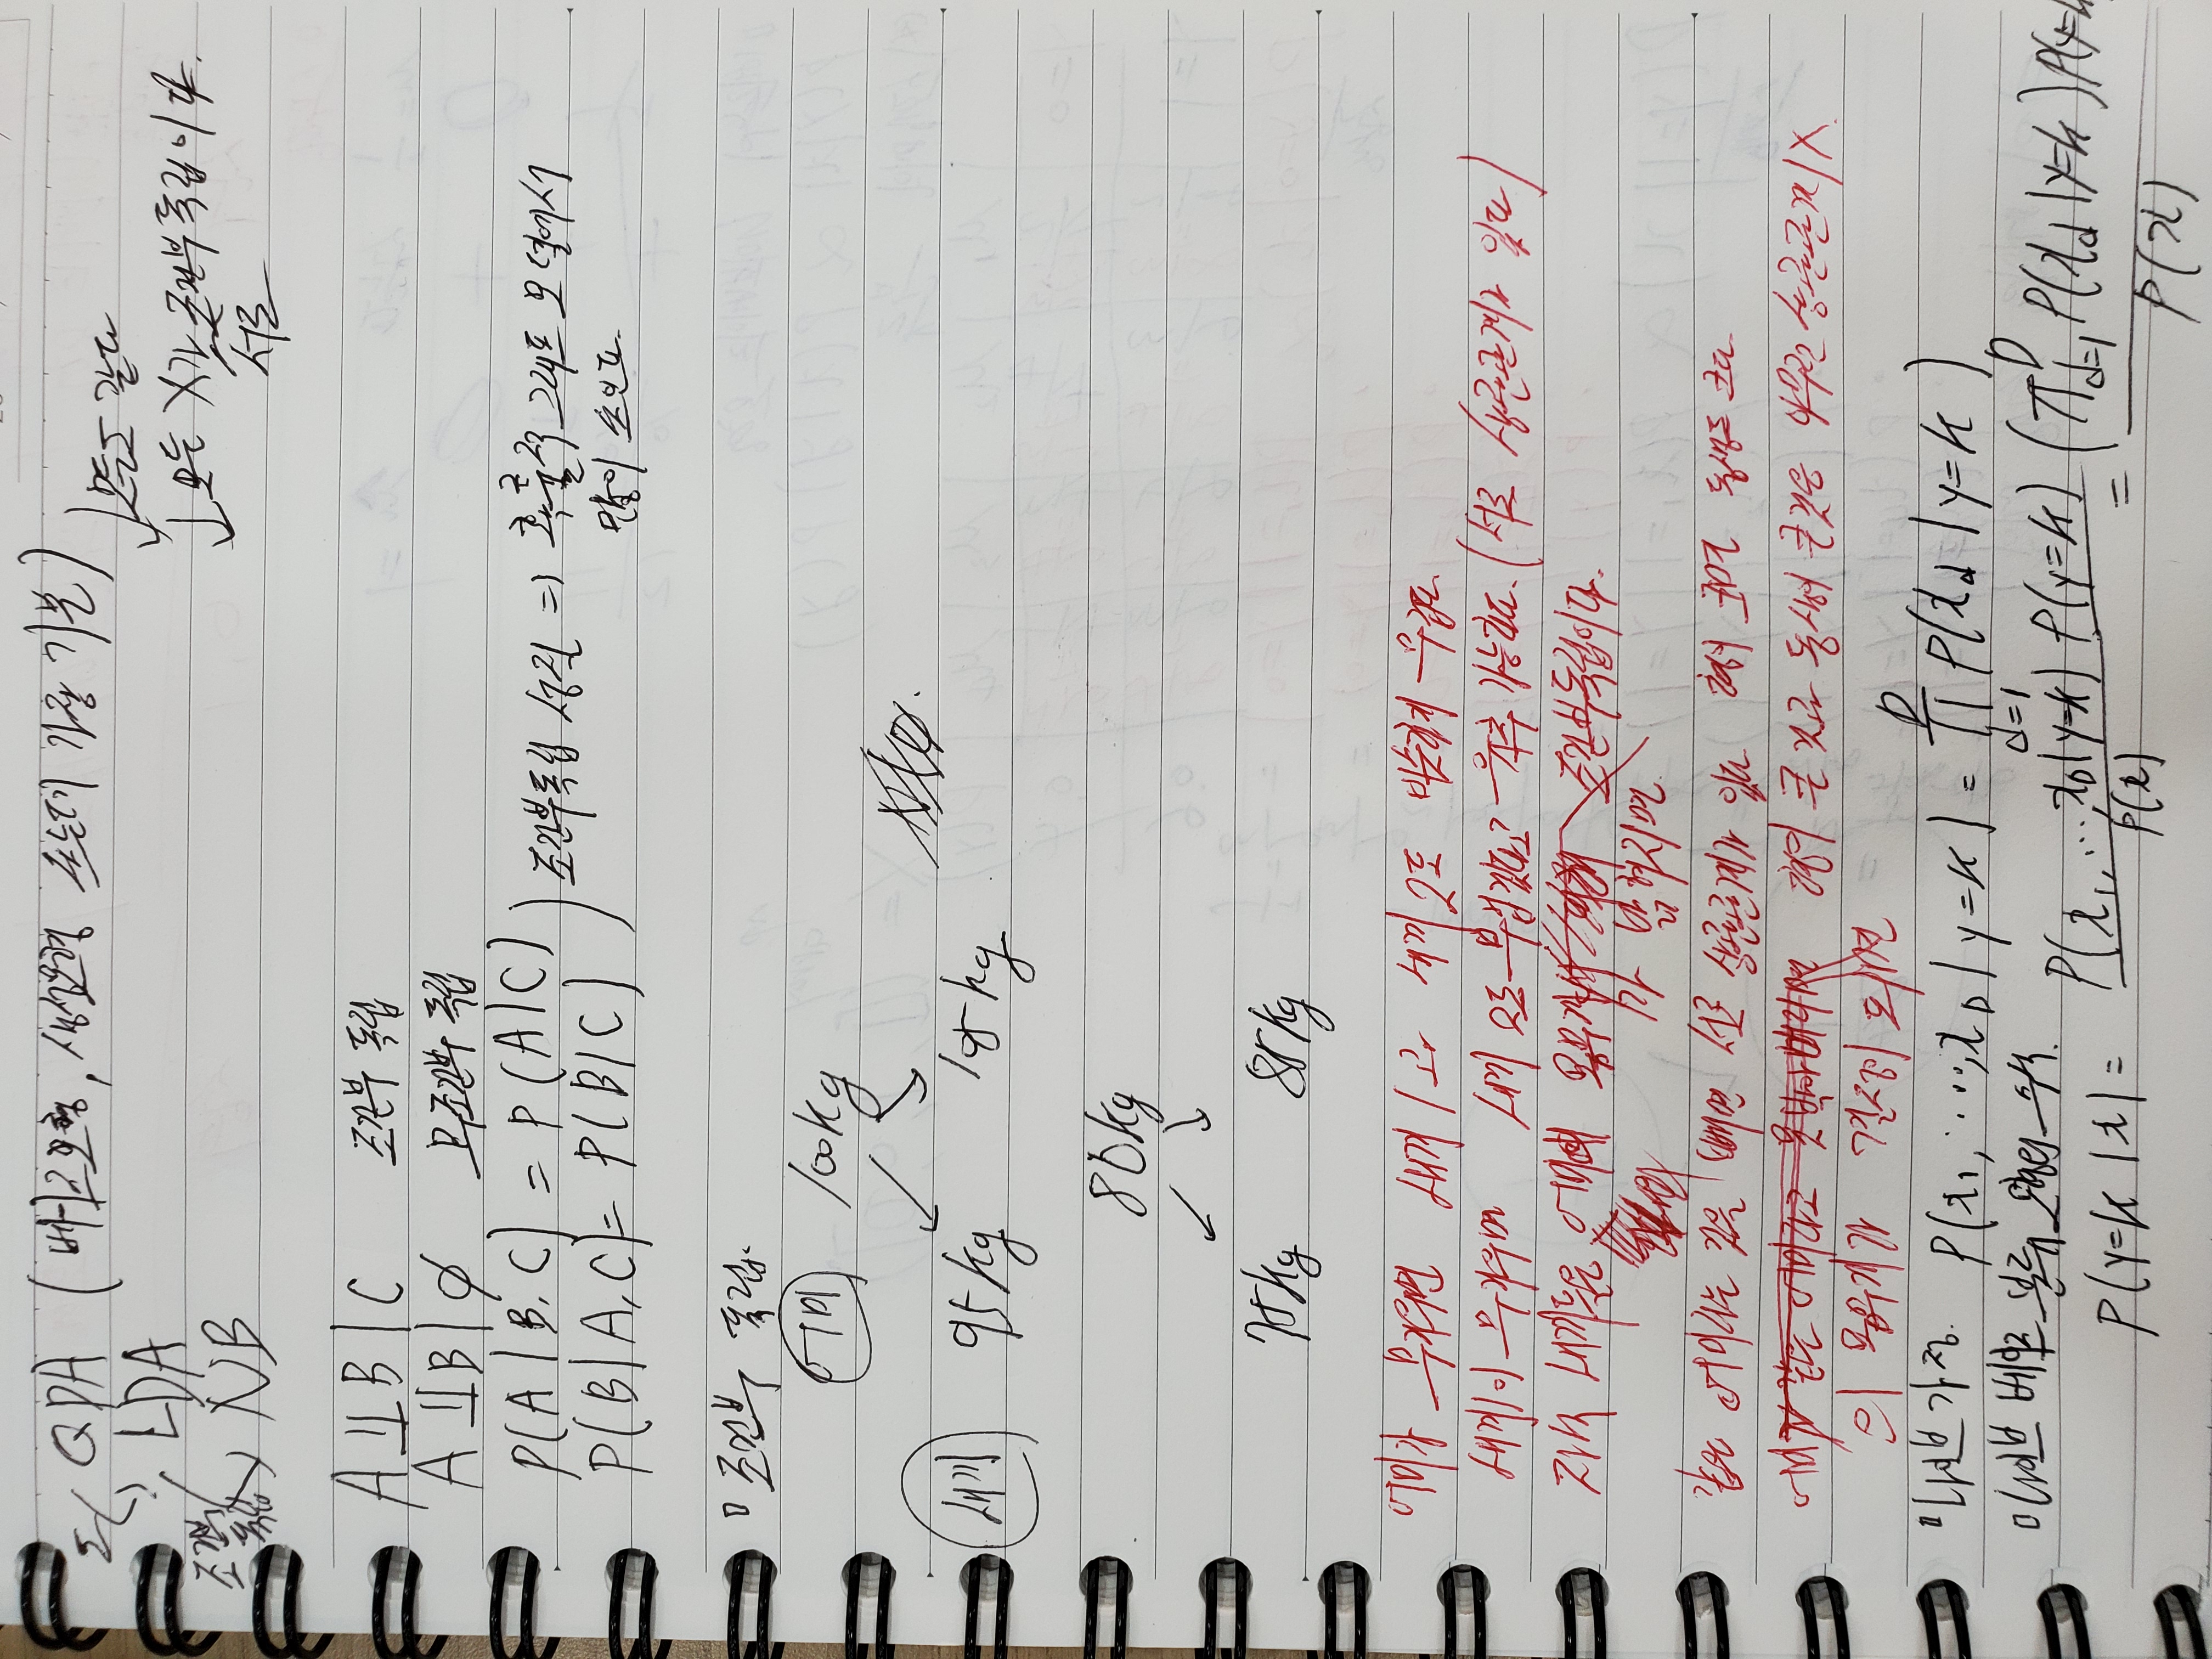 QDA (베이즈모형, 생성모형 모든데 가장 기본)
LDA
조건부
독립
NB
모든 Σ 같다
모든 X가 조건부독립이다.
서로
A⫫B|C 조건부 독립
A⫫B|∅ 무조건부 독립
P(A|B,C) = P(A|C)
P(B|A,C) = P(B|C)
조건부독립 성질 ⇒ 확률적 그래프 모델에서
많이 쓰인다.
조건부 독립.
어미 100kg
새끼 95kg 105kg
80kg
75kg 85kg
어미가 무거우면 새끼 1과 새끼 2도 비슷하게 무겁다.
새끼1이 무거우면 새끼 2도 무겁겠다고 유추 가능하다. (서로 상관관계가 있다)
자식 새끼들은 어미의 몸무게 조건부독립이다.
가 밝혀지면
같은 어미라는 것을 빼면 서로 상관관계가 있다 형이 크면 동생도 크다
어미가 같은 어미라고 못박아버리면 형이 큰 것과 동생이 큰것은 아무런 상관관계 X
의 몸무게가 결정이 되면
나이브 가정. P(x₁, ⋯, x_D | y=k) = ∏_{d=1}^{D} P(x_d | y=k)
나이브 베이즈 분류 모형의 수식.
P(y=k | x) = P(x₁, …, x_D | y=k) P(y=k) / P(x) = (∏_{d=1}^{D} P(x_d | y=k)) P(y=k / P(x)